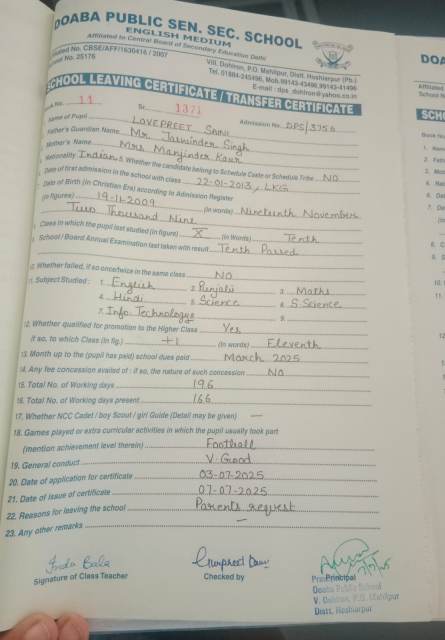 DOABA PUBLIC SEN. SEC. SCHOOL
ENGLISH MEDIUM
Affiliated to Central Board of Secondary Education Delhi
No. CBSE/AFF/1630416 / 2007
No. 25176
Vill. Dohlron, P.O. Mahilpur, Distt. Hoshiarpur (Pb.)
Tel. 01884-245496, Mob.99143-43496,99143-41496
E-mail : dps_dohlron@yahoo.co.in
SCHOOL LEAVING CERTIFICATE / TRANSFER CERTIFICATE
No. 11 Sr. 1371 Admission No. DPS/3756
Name of Pupil LOVEPREET SAINI
Father's Guardian Name Mr. Jaswinder Singh
Mother's Name Mrs Manjinder Kaur
Nationality Indian 5. Whether the candidate belong to Schedule Caste or Schedule Tribe NO
Date of first admission in the school with class 22-01-2013, LKG
Date of Birth (in Christian Era) according to Admission Register
(in figures) 19-11-2009 (in words) Nineteenth November
Two Thousand Nine
Class in which the pupil last studied (in figure) X (in Words) Tenth
School / Board Annual Examination last taken with result Tenth Passed
10. Whether failed, if so once/twice in the same class NO
11. Subject Studied : 1. English 2. Punjabi 3. Maths
4. Hindi 5. Science 6. S. Science
7. Info. Technology 9.
12. Whether qualified for promotion to the Higher Class Yes
If so, to which Class (in fig.) +1 (in words) Eleventh
13. Month up to the (pupil has paid) school dues paid March 2025
14. Any fee concession availed of : if so, the nature of such concession NO
15. Total No. of Working days 196
16. Total No. of Working days present 166
17. Whether NCC Cadet / boy Scout / girl Guide (Detail may be given) —
18. Games played or extra curricular activities in which the pupil usually took part
(mention achievement level therein) Football
19. General conduct V. Good
20. Date of application for certificate 03-07-2025
21. Date of issue of certificate 07-07-2025
22. Reasons for leaving the school Parents request
23. Any other remarks —
Indu Bala
Signature of Class Teacher
Checked by
Principal
Doaba Public School
V. Dohlron, P.O. Mahilpur
Distt. Hoshiarpur
DOA
SCH